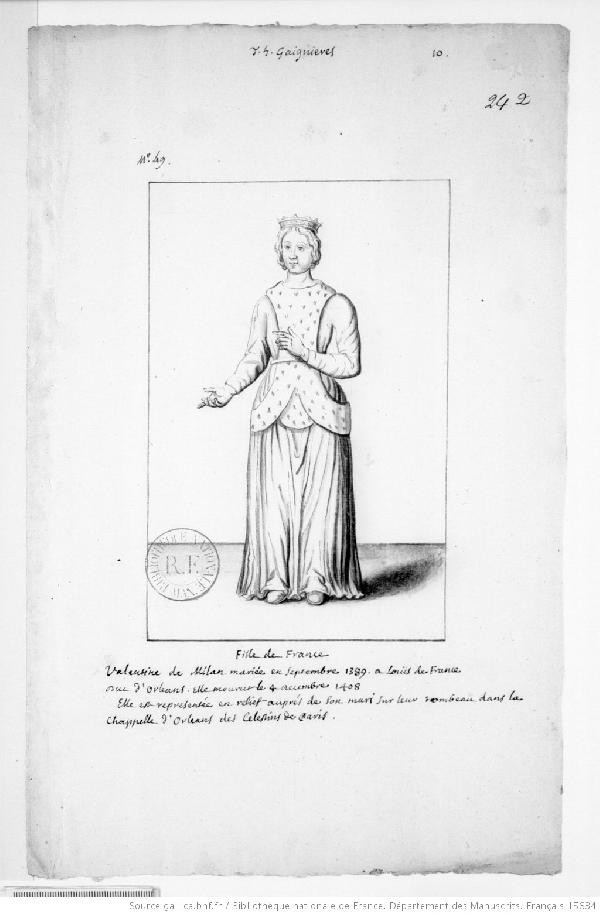 T. 4. Gaignieres 10.
242
No. 49.
BIBLIOTHEQUE NATIONALE
R.F.
Fille de France
Valentine de Milan mariée en Septembre 1389. a Louis de France
Duc d'Orleans. elle mourut le 4 decembre 1408
Elle est representée en relief auprés de Son mari Sur leur Tombeau dans la
Chappelle d'Orleans des Celestins de Paris.
Source gallica.bnf.fr / Bibliothèque nationale de France. Département des Manuscrits. Français 15634